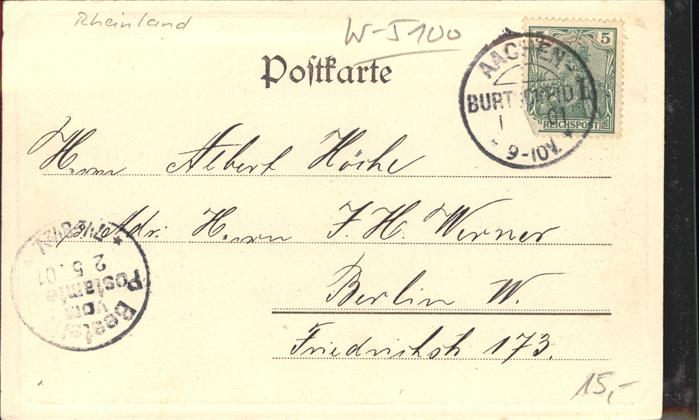 Rheinland
W-J100
Postkarte
5
REICHSPOST
AACHEN-
BURT
I
01
9-10V.
Herrn Albert Höche
Adr. Herrn J. H. Werner
Berlin W.
Friedrichstr 173.
Bestellt
vom
Postamte
2 5. 01
15,-